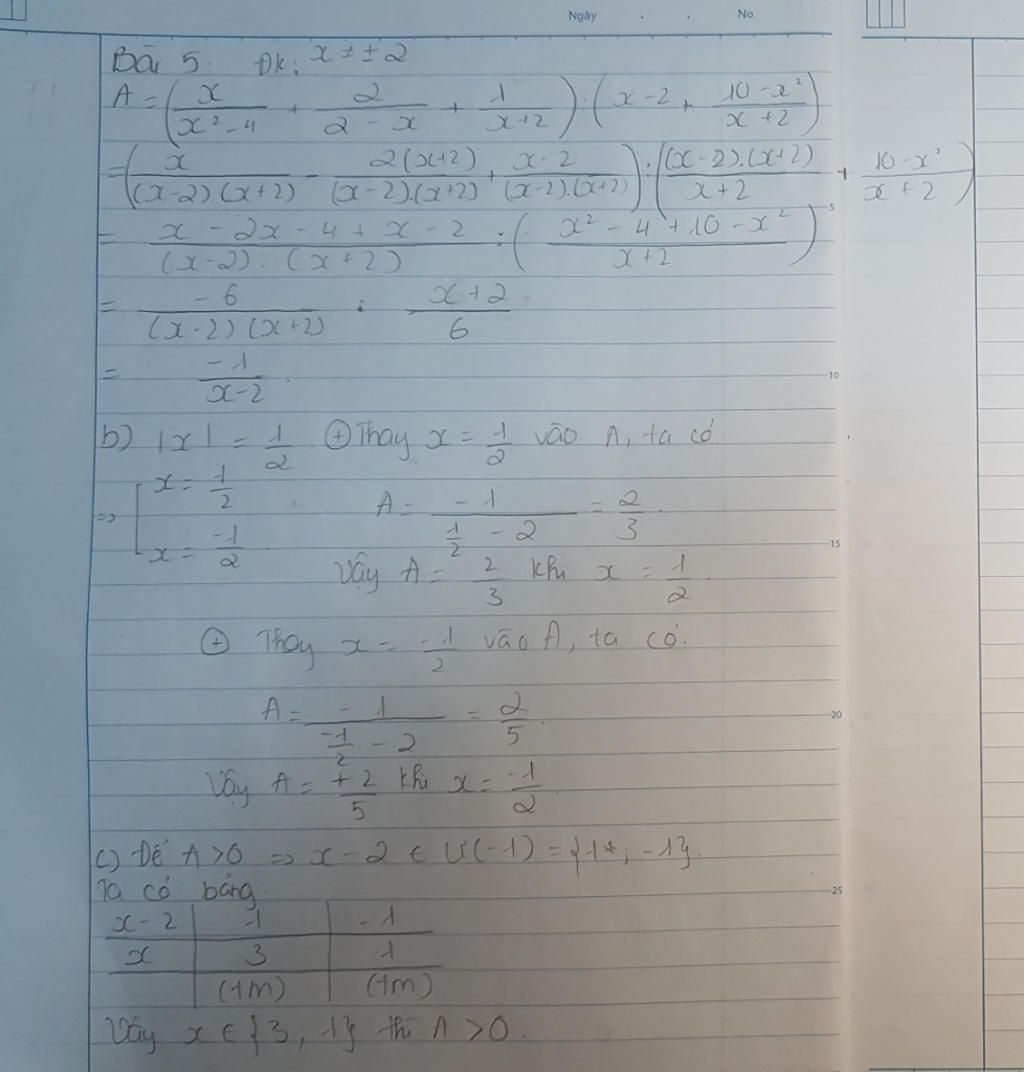 Ngày . . No.
Bài 5. Đk: x ≠ ± 2
A = (x/(x² - 4) + 2/(2 - x) + 1/(x+2)) : (x - 2 + (10 - x²)/(x + 2))
= (x/((x-2).(x+2)) - 2(x+2)/((x-2).(x+2)) + (x-2)/((x-2).(x+2))) : ((x-2).(x+2)/(x+2) + (10 - x²)/(x+2))
= (x - 2x - 4 + x - 2)/((x-2).(x+2)) : ((x² - 4 + 10 - x²)/(x+2))
= -6/((x-2)(x+2)) : (x+2)/6
= -1/(x-2)
b) |x| = 1/2 ⊕ Thay x = 1/2 vào A, ta có
⇒ [ x = 1/2
x = -1/2
A = -1/(1/2 - 2) = 2/3.
Vậy A = 2/3 khi x = 1/2.
⊕ Thay x = -1/2 vào A, ta có.
A = -1/(-1/2 - 2) = 2/5.
Vậy A = +2/5 khi x = -1/2
c) Để A > 0 ⇒ x - 2 ∈ Ư(-1) = {1; -1}.
Ta có bảng.
x - 2 | 1 | -1
x | 3 | 1
(tm) | (tm)
Vậy x ∈ {3, 1} thì A > 0.
5
10
15
20
25